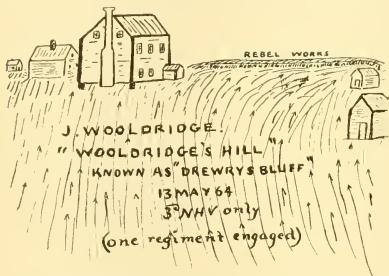 REBEL WORKS
J. WOOLDRIDGE.
"WOOLDRIDGE'S HILL"
KNOWN AS "DREWRYS BLUFF"
13 MAY 64
3D NHV only
(one regiment engaged)